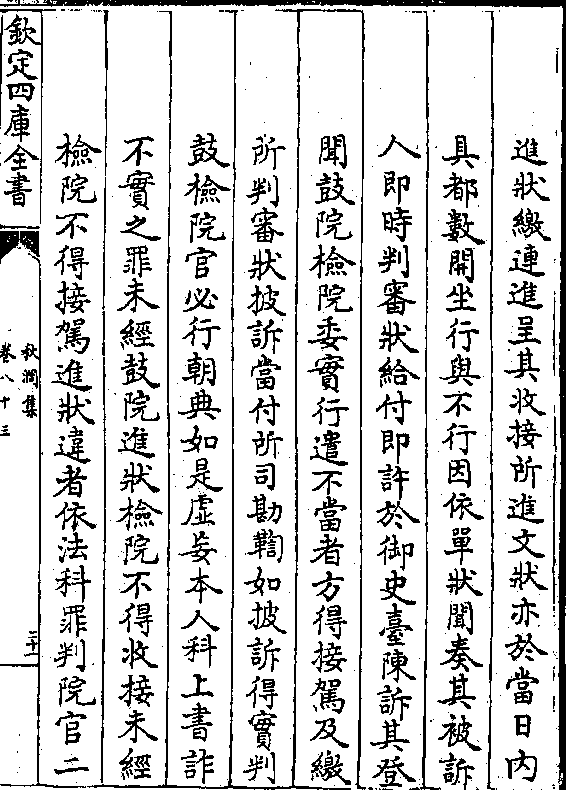 進狀繳連進呈其收接所進文狀亦於當日内
具都數開坐行與不行因依單狀聞奏其被訴
人即時判審狀給付即許於御史臺陳訴其登
聞鼓院檢院委實行遣不當者方得接駕及繳
所判審狀披訴當付所司勘鞫如披訴得實判
鼓檢院官必行朝典如是虚妄本人科上書詐
不實之罪未經鼓院進狀檢院不得收接未經
檢院不得接駕進狀違者依法科罪判院官二
欽定四庫全書
秋澗集
卷八十三
三十一